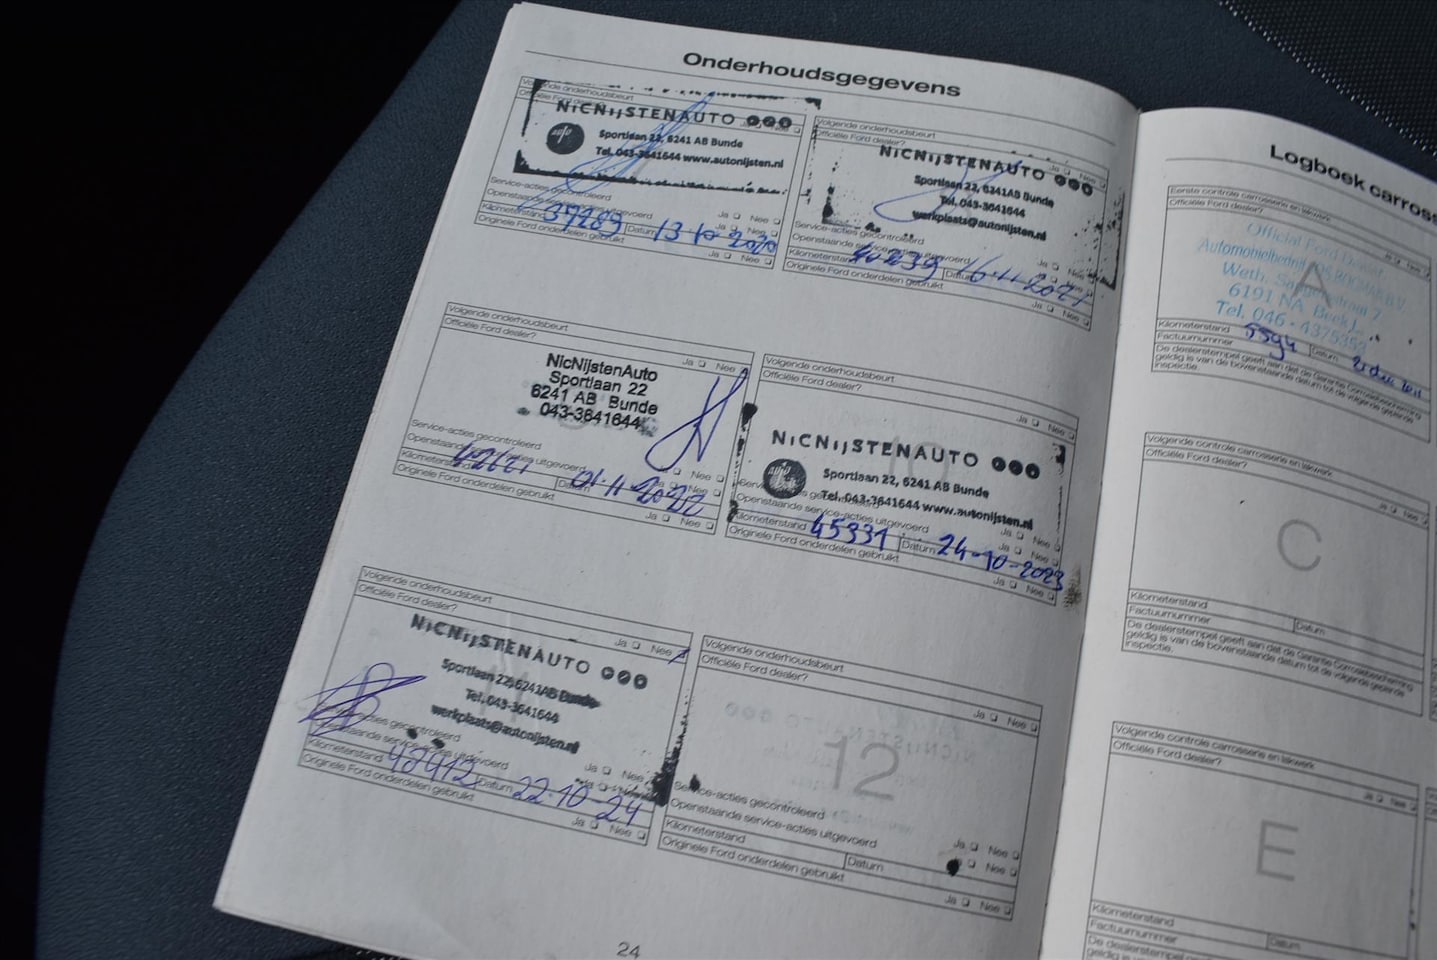 Onderhoudsgegevens
Volgende onderhoudsbeurt
Officiële Ford dealer?
NiCNijSTENAUTO
auto
Sportlaan 22, 6241 AB Bunde
Tel. 043-3641644 www.autonijsten.nl
Service-acties gecontroleerd Ja Nee
Openstaande service-acties uitgevoerd Ja Nee
Kilometerstand 39289 Datum 13-10-2020
Originele Ford onderdelen gebruikt Ja Nee
Volgende onderhoudsbeurt
Officiële Ford dealer? Ja Nee
NiCNijSTENAUTO
Sportlaan 22, 6241AB Bunde
Tel. 043-3641644
werkplaats@autonijsten.nl
Service-acties gecontroleerd Ja Nee
Openstaande service-acties uitgevoerd Ja Nee
Kilometerstand 40239 Datum 16-11-2021
Originele Ford onderdelen gebruikt Ja Nee
Volgende onderhoudsbeurt
Officiële Ford dealer? Ja Nee
NicNijstenAuto
Sportlaan 22
6241 AB Bunde
043-3641644
Service-acties gecontroleerd Ja Nee
Openstaande service-acties uitgevoerd Ja Nee
Kilometerstand Datum 01-11-2022
Originele Ford onderdelen gebruikt Ja Nee
Volgende onderhoudsbeurt
Officiële Ford dealer? Ja Nee
10
NiCNijSTENAUTO
auto
Sportlaan 22, 6241 AB Bunde
Tel. 043-3641644 www.autonijsten.nl
Service-acties gecontroleerd Ja Nee
Openstaande service-acties uitgevoerd Ja Nee
Kilometerstand 45331 Datum 24-10-2023
Originele Ford onderdelen gebruikt Ja Nee
Volgende onderhoudsbeurt
Officiële Ford dealer? Ja Nee
NiCNijSTENAUTO
Sportlaan 22, 6241AB Bunde
Tel. 043-3641644
werkplaats@autonijsten.nl
Service-acties gecontroleerd Ja Nee
Openstaande service-acties uitgevoerd Ja Nee
Kilometerstand 47412 Datum 22-10-24
Originele Ford onderdelen gebruikt Ja Nee
Volgende onderhoudsbeurt
Officiële Ford dealer? Ja Nee
12
Service-acties gecontroleerd Ja Nee
Openstaande service-acties uitgevoerd Ja Nee
Kilometerstand Datum
Originele Ford onderdelen gebruikt Ja Nee
24
Logboek carross
Eerste controle carrosserie en lakwerk
Officiële Ford dealer? Ja Nee
A
Official Ford Dealer
6191 NA Beek L.
Tel. 046-4375353
Kilometerstand 5594
Factuurnummer Datum
De dealerstempel geeft aan dat de Garantie Carrosseriebescherming
geldig is van de bovenstaande datum tot de volgende geplande
inspectie.
Volgende controle carrosserie en lakwerk
Officiële Ford dealer? Ja Nee
C
Kilometerstand
Factuurnummer Datum
De dealerstempel geeft aan dat de Garantie Carrosseriebescherming
geldig is van de bovenstaande datum tot de volgende geplande
inspectie.
Volgende controle carrosserie en lakwerk
Officiële Ford dealer? Ja Nee
E
Kilometerstand
Factuurnummer Datum
De dealerstempel geeft aan dat de Garantie Carrosseriebescherming